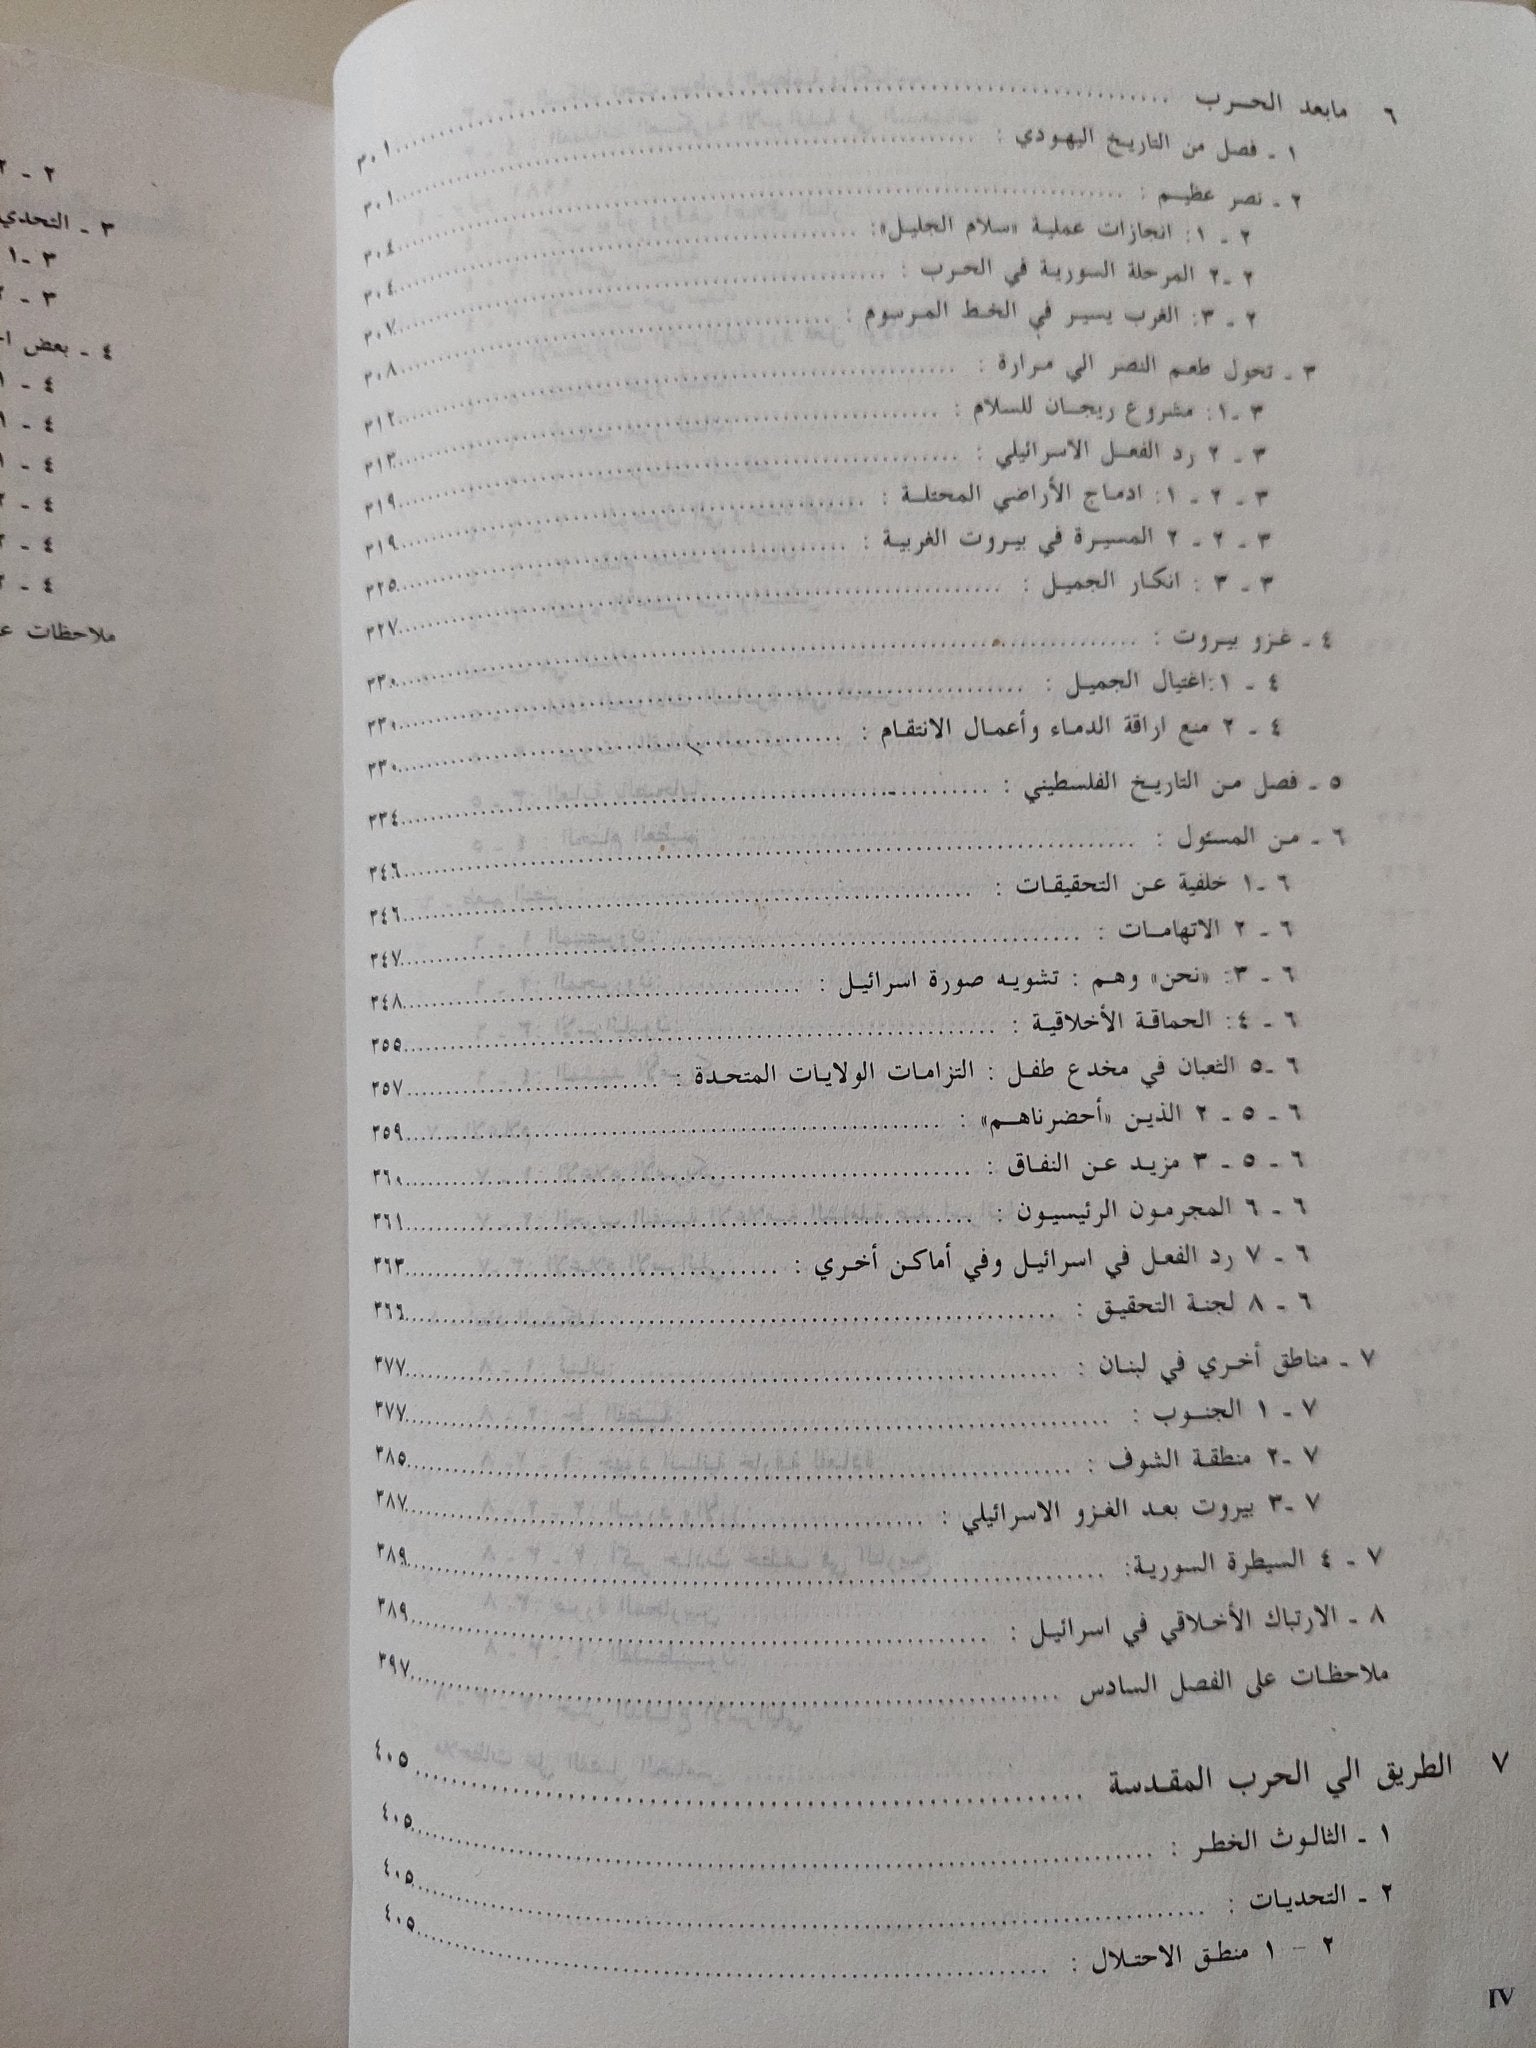 ٦ مابعد الحرب ........ ٣٠١
١ - فصل من التاريخ اليهودي : ........ ٣٠١
٢ - نصر عظيم : ........ ٣٠٤
٢ - ١: انجازات عملية «سلام الجليل»: ........ ٣٠٤
٢ -٢ المرحلة السورية في الحرب : ........ ٣٠٧
٢ - ٣: الغرب يسير في الخط المرسوم : ........ ٣٠٨
٣ - تحول طعم النصر الي مرارة : ........ ٣١٢
٣ -١: مشروع ريجان للسلام : ........ ٣١٣
٣ - ٢ رد الفعل الاسرائيلي : ........ ٣١٩
٣ - ٢ - ١: ادماج الأراضي المحتلة : ........ ٣١٩
٣ - ٢ - ٢ المسيرة في بيروت الغربية : ........ ٣٢٥
٣ - ٣ : انكار الجميل : ........ ٣٢٧
٤ - غزو بيروت : ........ ٣٣٠
٤ - ١:اغتيال الجميل : ........ ٣٣٠
٤ - ٢ منع اراقة الدماء وأعمال الانتقام : ........ ٣٣٠
٥ - فصل من التاريخ الفلسطيني : ........ ٣٣٤
٦ - من المسئول : ........ ٣٤٦
٦ -١ خلفية عن التحقيقات : ........ ٣٤٦
٦ - ٢ الاتهامات : ........ ٣٤٧
٦ - ٣: «نحن» وهم : تشويه صورة اسرائيل : ........ ٣٤٨
٦ - ٤: الحماقة الأخلاقية : ........ ٣٥٥
٦ -٥ الثعبان في مخدع طفل : التزامات الولايات المتحدة : ........ ٣٥٧
٦ - ٥ - ٢ الذين «أحضرناهم» : ........ ٣٥٩
٦ - ٥ - ٣ مزيد عن النفاق : ........ ٣٦٠
٦ - ٦ المجرمون الرئيسيون : ........ ٣٦١
٦ - ٧ رد الفعل في اسرائيل وفي أماكن أخري : ........ ٣٦٣
٦ - ٨ لجنة التحقيق : ........ ٣٦٦
٧ - مناطق أخري في لبنان : ........ ٣٧٧
٧ - ١ الجنوب : ........ ٣٧٧
٧ -٢ منطقة الشوف : ........ ٣٨٥
٧ -٣ بيروت بعد الغزو الاسرائيلي : ........ ٣٨٧
٧ - ٤ السيطرة السورية: ........ ٣٨٩
٨ - الارتباك الأخلاقي في اسرائيل : ........ ٣٨٩
ملاحظات على الفصل السادس ........ ٣٩٧
٧ الطريق الي الحرب المقدسة ........ ٤٠٥
١ - الثالوث الخطر : ........ ٤٠٥
٢ - التحديات : ........ ٤٠٥
٢ - ١ منطق الاحتلال : ........ ٤٠٥
IV
٢ - ٢
٣ - التحدي
٣ -١
٣ -
٤ - بعض
٤ -
٤ -
٤ -
٤ -
٤ -
٤ -
ملاحظات